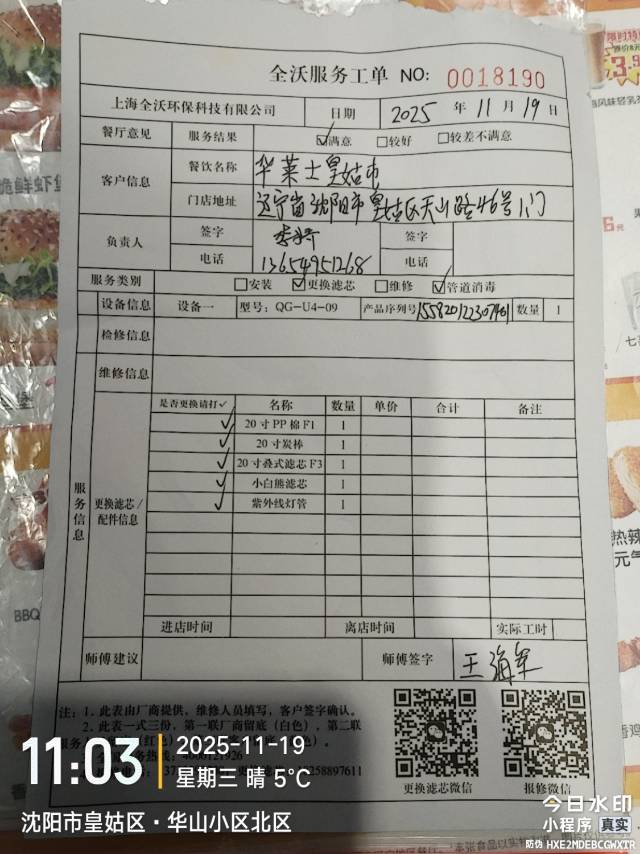 全沃服务工单 NO: 0018190
上海全沃环保科技有限公司 日期 2025 年 11 月 19 日
餐厅意见 服务结果 ☑满意 □较好 □较差不满意
客户信息 餐饮名称 华莱士皇姑市
门店地址 辽宁省沈阳市皇姑区天山路46号1门
负责人 签字 签字
电话 13654951268 电话
服务类别 □安装 ☑更换滤芯 □维修 ☑管道消毒
设备信息 设备一 型号: QG-U4-09 产品序列号 数量 1
检修信息
维修信息
服务信息
更换滤芯/配件信息
是否更换请打✓ 名称 数量 单价 合计 备注
✓ 20寸PP棉F1 1
✓ 20寸炭棒 1
✓ 20寸叠式滤芯F3 1
✓ 小白熊滤芯 1
✓ 紫外线灯管 1
进店时间 离店时间 实际工时
师傅建议 师傅签字 王海军
注: 1、此表由厂商提供，维修人员填写，客户签字确认。
2、此表一式三份，第一联厂商留底（白色），第二联
更换滤芯微信 报修微信
11:03
2025-11-19
星期三 晴 5℃
沈阳市皇姑区·华山小区北区
今日水印
小程序 真实
防伪 HXE2MDEBCGWXTR
BBQ